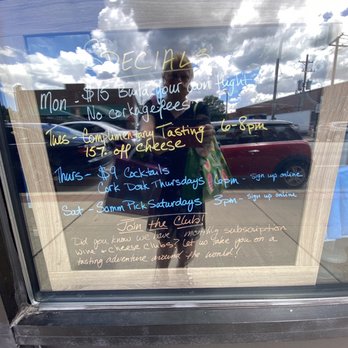 SPECIALS
Mon - $15 Build your own flight
No corkage fees
Tues - Complimentary Tasting 6-8pm
15% off cheese
Thurs - $9 Cocktails
Cork Dork Thursdays 6pm - sign up online
Sat - Somm Pick Saturdays 3pm - sign up online
Join the Club!
Did you know we have monthly subscription
wine + cheese clubs? Let us take you on a
tasting adventure around the world!